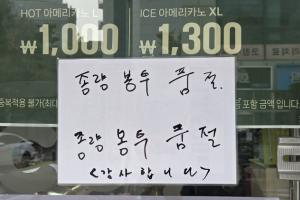 HOT 아메리카노 L
₩1,000
ICE 아메리카노 XL
₩1,300
중복적용 불가
포함 금액 입니다
종량 봉투 품절.
종량 봉투 품절
<감사합니다>